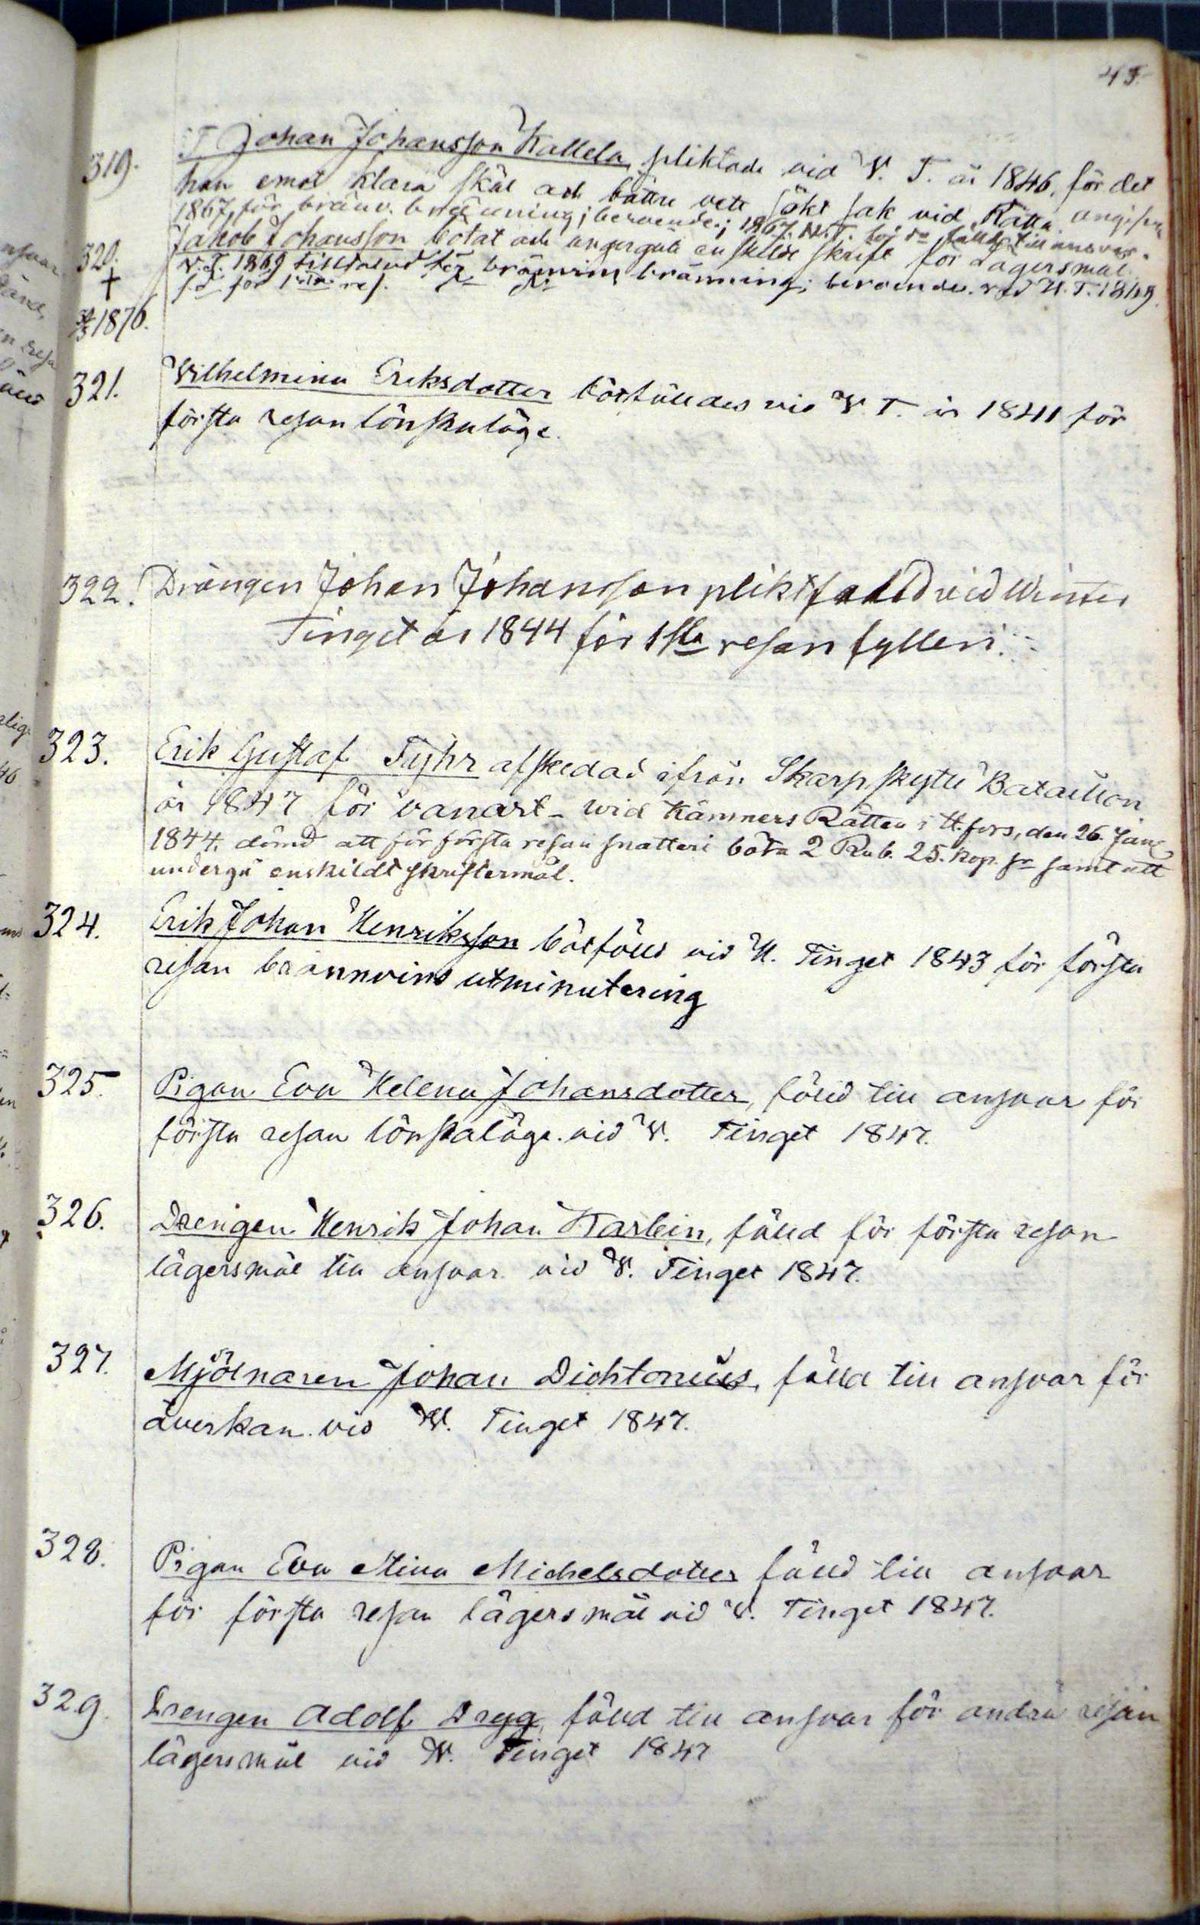 45.
319. T. Johan Johansson Kallela, pliktade vid V. T. år 1846, för det
han emot klara skäl och bättre vett sökt sak vid Rätta. angifven
1867 för bränv. bränning; beroende; 1867 H.T. för do fälld till ansvar.
320. Jakob Johansson botat och undergått enskildt skrift för Lägersmål.
† V. T. 1869 tilltalad för bränvins bränning; beroende. vid H. T. 1869
sd för 1sta res.
1876.
321. Wilhelmina Eriksdotter botfälldes vid V T. år 1841 för
första resan lönskaläge.
322. Drängen Johan Johansson pliktfälld vid Winter
Tinget år 1844 för 1sta resan fylleri.
323. Erik Gustaf Fyhr afskedad ifrån Skarpskytte Bataillon
år 1847 för vanart - wid Kämners Rätten i H:fors, den 26 Jan
1844. dömd att för första resan snatteri böta 2 Rub. 25. kop. sr samt att
undergå enskildt skriftermål.
324. Erik Johan Henriksson botfälld vid H. Tinget 1843 för första
resan brännvins utminutering
325. Pigan Eva Helena Johansdotter, fälld till ansvar för
första resan lönskaläge. vid V. Tinget 1847.
326. Drengen Henrik Johan Karlein, fälld för första resan
lägersmål till ansvar vid V. Tinget 1847.
327. Mjölnaren Johan Dichtonius, fälld till ansvar för
åverkan. vid W. Tinget 1847.
328. Pigan Eva Stina Michelsdotter fälld till ansvar
för första resan lägersmål vid V. Tinget 1847.
329. Drengen Adolf Dryg, fälld till ansvar för andra resan
lägersmål vid W. Tinget 1847